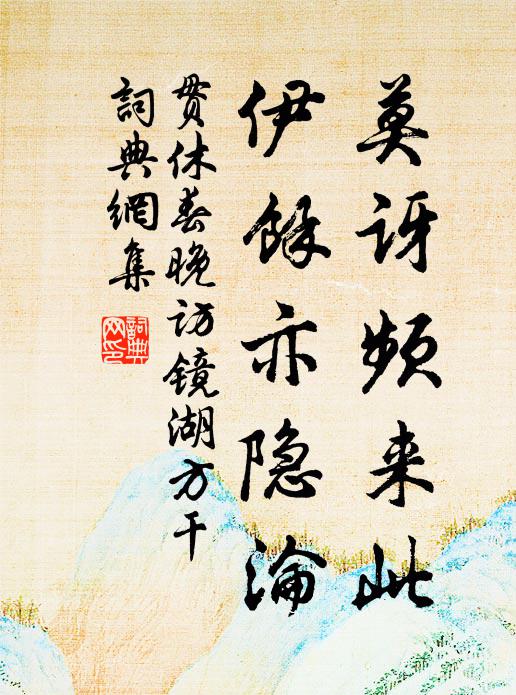 莫訝频来此
伊餘亦隐淪
贯休春晚访镜湖方干
詞典網集
詞典网印